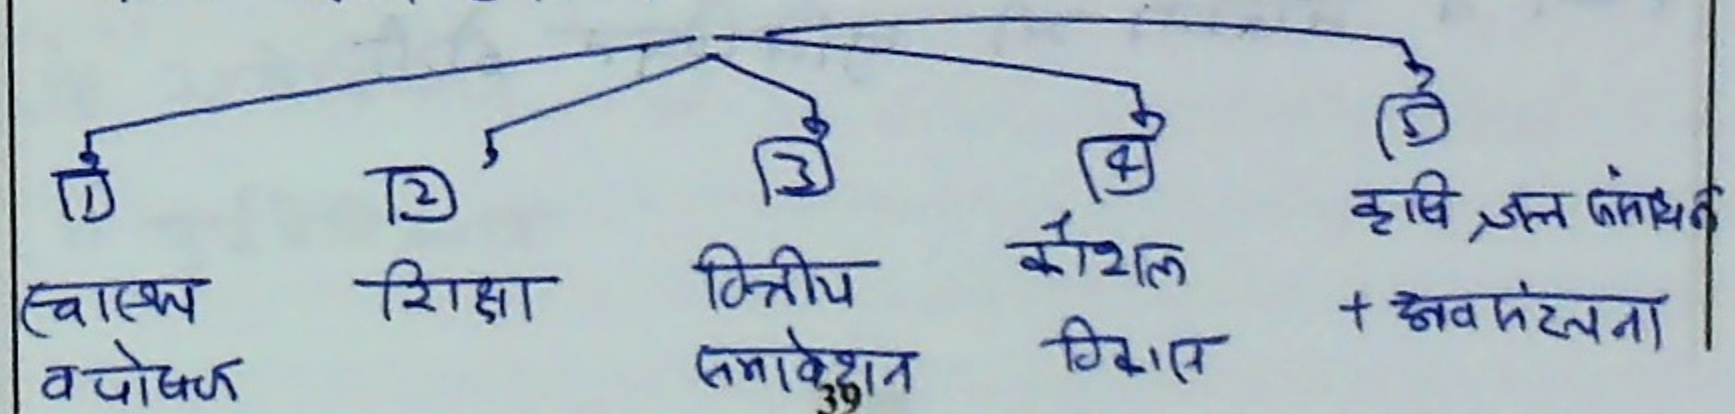 1 2 3 4 5
स्वास्थ्य व पोषण
शिक्षा
वित्तीय समावेशन
कौशल विकास
कृषि, जल संसाधन + अवसंरचना
39